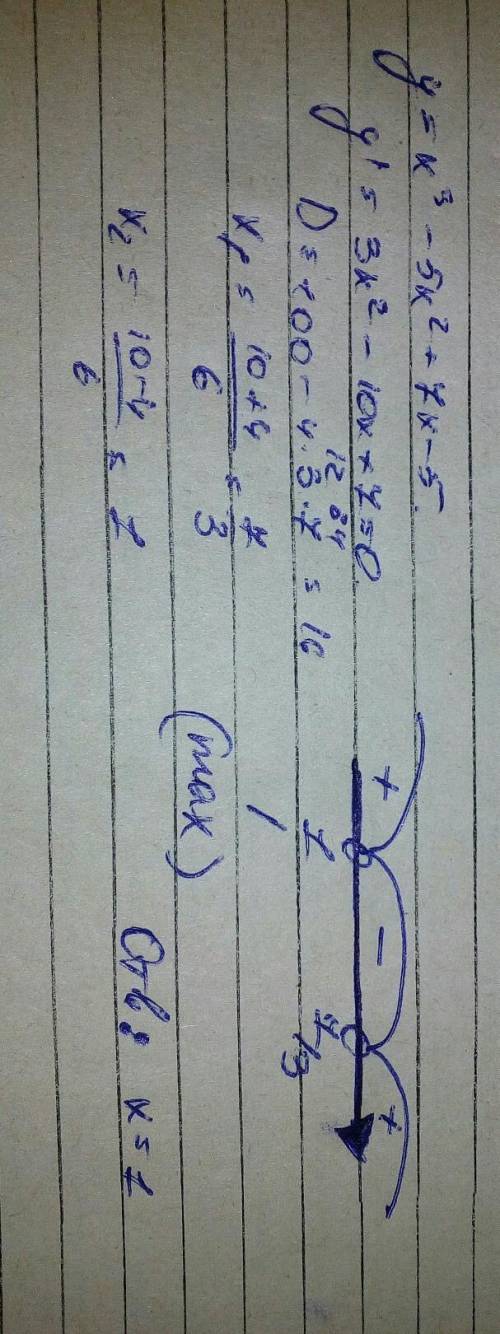 y = x³ - 5x² + 7x - 5.
y' = 3x² - 10x + 7 = 0
D = 100 - 4·3·7 = 16
12 84
x₁ = (10+4)/6 = 7/3
x₂ = (10-4)/6 = 1
+ - +
1 7/3
(max)
Отв: x = 1